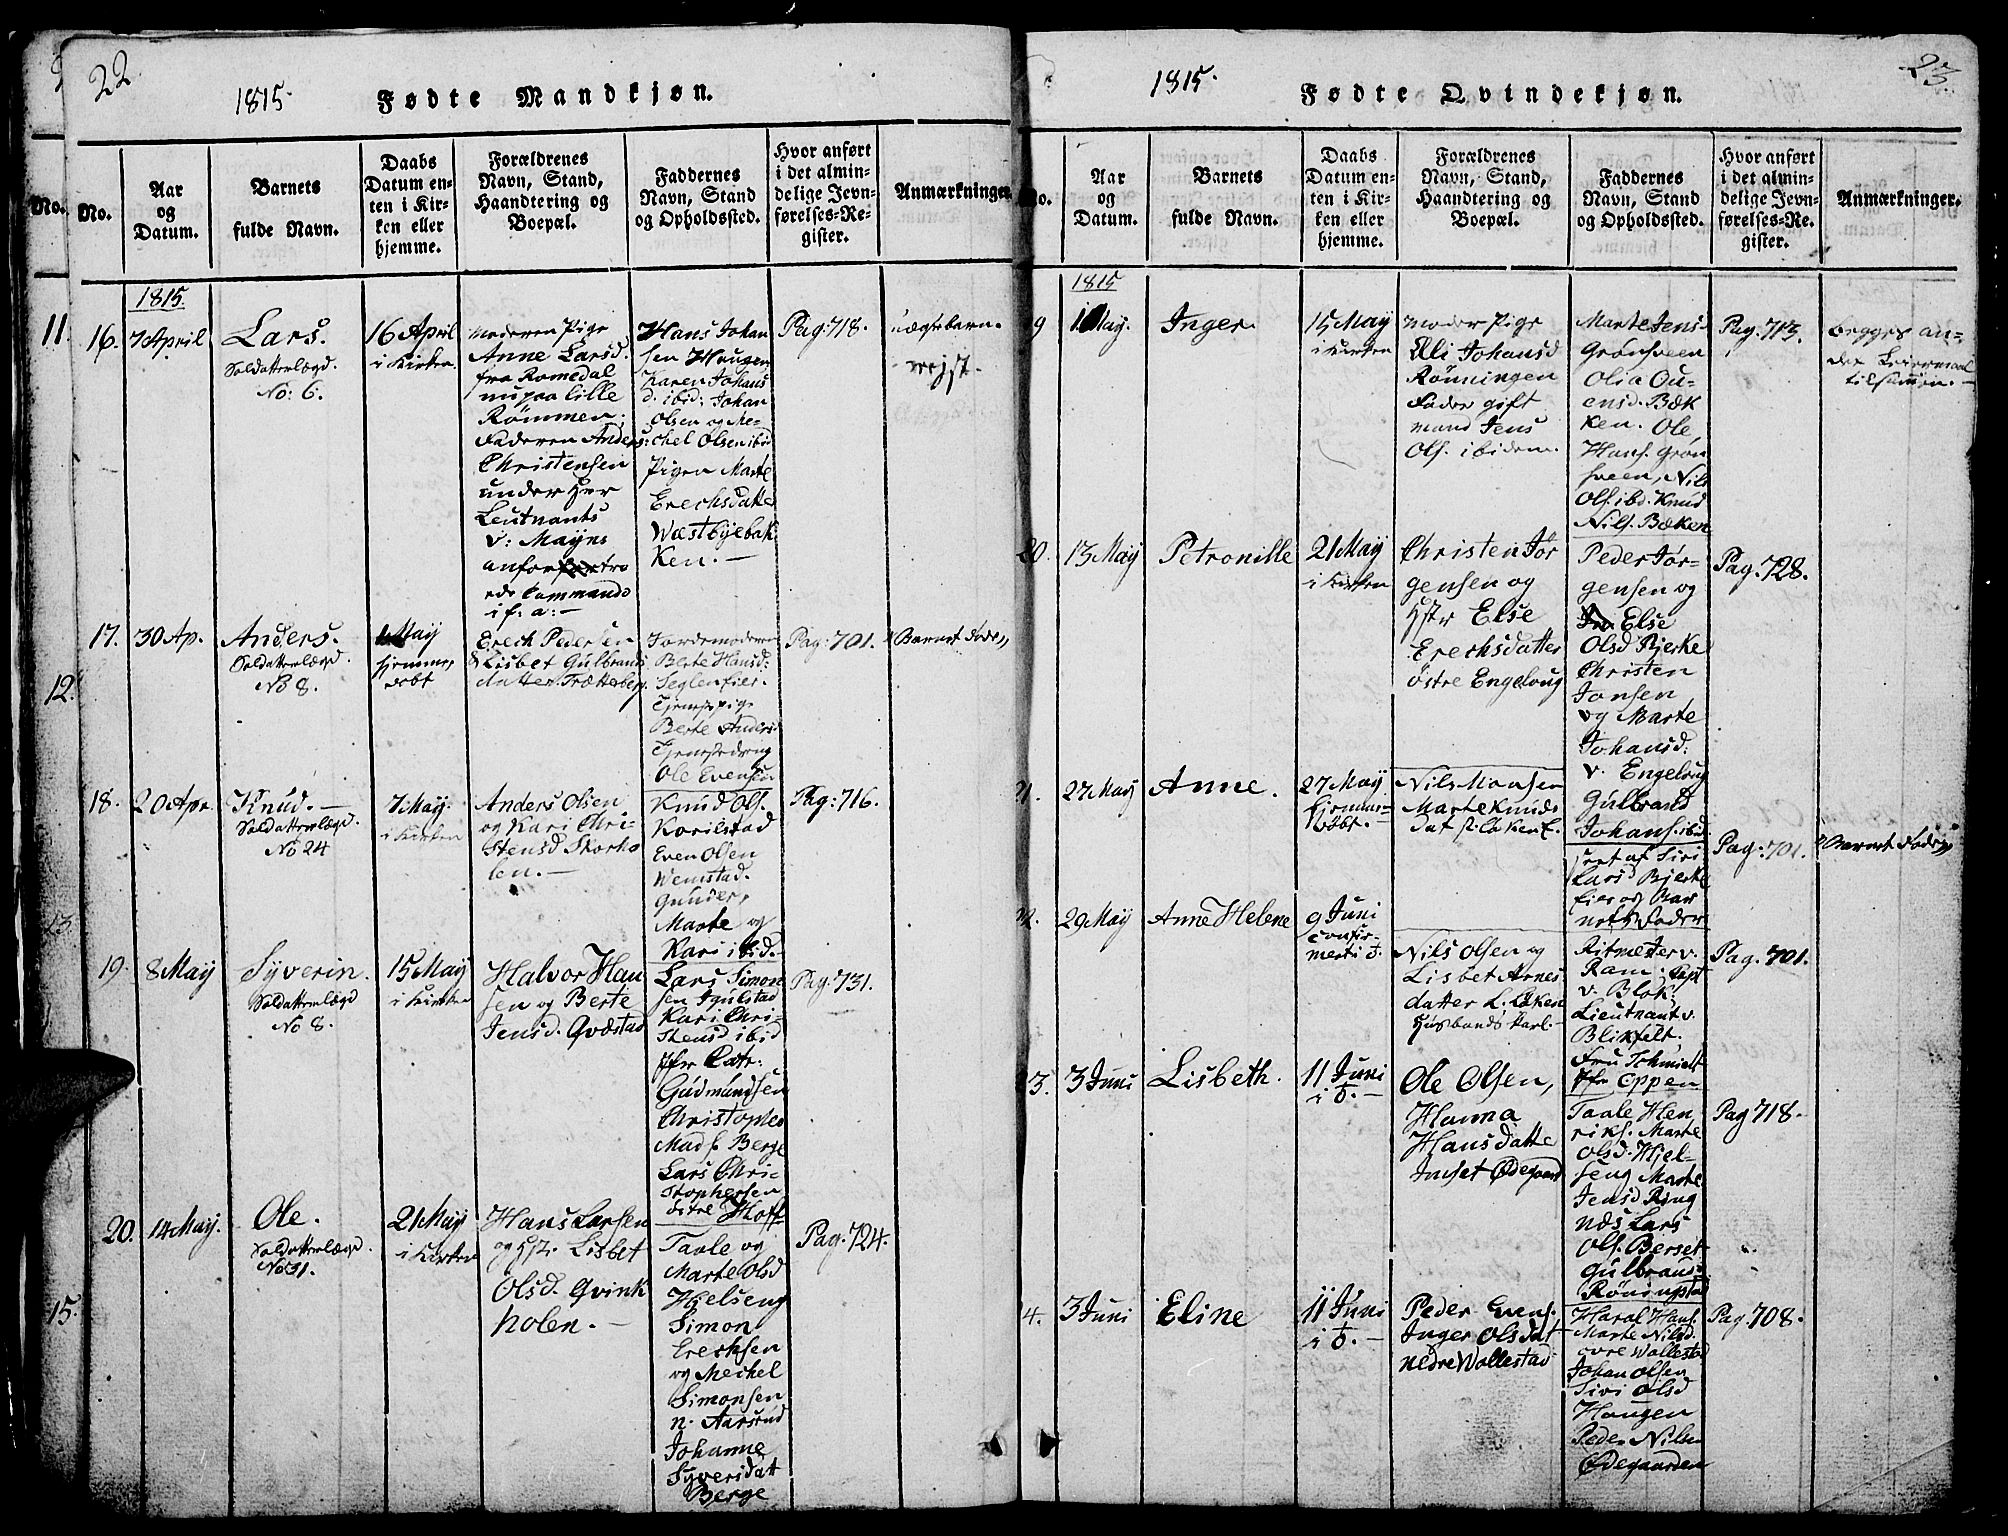 22
1815.
Fødte Mandkjøn.
No.
Aar
og
Datum.
Barnets
fulde Navn.
Daabs
Datum en-
ten i Kir-
ken eller
hjemme.
Forældrenes
Navn, Stand,
Haandtering og
Boepæl.
Faddernes
Navn, Stand
og Opholdssted.
Hvor anført
i det almin-
delige Jevn-
førelses-Re-
gister.
Anmærkninger.
1815.
16.
7 April
Lars.
Soldatterlægd.
No: 6.
16 April
i Kirken.
Moderen Pige
Anne Larsd.
fra Romedal
nu paa lille
Rømmen:
Faderen Anders
Christensen
under Her
Leutnants
v: Mayns
anfortro
ede Commando
Hans Johan
sen Haugen
Karen Johans
d. ibid: Johan
Olsen og Me-
chel Olsen ibid
Pigen Marte
Erechsdatter
Wæstbyebak
ken. —
Pag: 718.
uægtebarn.
17.
30 Ap.
Anders.
Soldatterlægd.
No 8.
May
hjemme
døbt
Erech Pedersen
& Lisbet Gulbrands
datter Trætteberg.
Jordemoderen
Berte Hansd:
Seglen Eier.
Tjenestepige
Berte Anders.
Tjenestedreng
Ole Evensen
Pag: 701.
Barnet døde
18.
20 Apr.
Knud. —
Soldatterlægd.
No 24
7 May.
i Kirken
Anders Olsen
og Kari Chri-
stensd Storho
len. —
Knud Ols.
Korilstad
Even Olsen
Wemstad.
Gunder,
Marte og
Kari ibid.
Pag: 716.
19.
8 May
Syverin.
Soldatterlægd
No 8.
15 May
i Kirken
Halvor Han
sen og Berte
Jensd. Qvæstad
Lars Simon
sen Igulstad
Kari Chri-
stensd ibid
Jfr Catr:
Gudmundsen
Christopher
Mads. Berge
Lars Chri-
stophersen
ditre Hoff
Pag: 731.
20.
14 May.
Ole.
Soldatterlægd.
No 31.
21 May
i Kirken
Hans Larsen
og Hst. Lisbet
Olsd. Qvink
holen. —
Taale og
Marte Olsd
Hjelseng
Simon
Erechsen
og Mechel
Simonsen
n. Aarsrud
Johanne
Syversdat
Berge
Pag: 724.
11
12.
13
15.
23.
1815.
Fødte Qvindekjøn.
No.
Aar
og
Datum.
Barnets
fulde Navn.
Daabs
Datum en-
ten i Kir-
ken eller
hjemme.
Forældrenes
Navn, Stand,
Haandtering og
Boepæl.
Faddernes
Navn, Stand
og Opholdssted.
Hvor anført
i det almin-
delige Jevn-
førelses-Re-
gister.
Anmærkninger.
1815
9
May.
Inger.
15 May
i Kirken
Moder Pige
Eli Johansd
Rønningen
Fader gift
mand Jens
Ols. ibidem.
Marte Jensd
Grønsveen
Olia Ou-
ensd. Bæk
ken. Ole
Hans. Grøn
sveen, Nils
Ols. ibd. Knud
Nils. Bæken
Pag: 713.
begges an-
det Leiermaal
tilsamen. —
20.
13 May
Petronille
21 May
i Kirken
Christen Jør
gensen og
Hstr Else
Erechsdatter
østre Engeloug
Peder Jør-
gensen og
Else
Olsd Bjerke
Christen
Jonsen
og Marte
Johansd:
v. Engeloug
Gulbrand
Johans. ibid.
Pag: 728.
21.
27 May
Anne.
27 May
hjemme-
døbt. —
Nils Monsen
Marte Knuds
dat
Siri
Lars d Bjerke
Eier og Bar
nets Fader
Pag: 701.
Barnet døde
22.
29 May
Anne Helene
9 Juni
confir-
mert i
Nils Olsen og
Lisbet Arnes
datter L. Løken
Husbonds Karl. —
Ritmester v.
Ram. Capt
v. Blok:
Lieutnant v.
Blikfelt.
Fru Schmiedt
Jfr Oppen
Pag. 701.
3.
3 Juni
Lisbeth.
11 Juni
Ole Olsen,
Hanna
Hansdatter
Inset Ødegaard
Taale Hen
riks. Marte
Olsd. Hjel-
seng Marte
Jensd Ring
næs Lars
Ols. Berset
Gulbrand
Rønningstad
Pag 718.
4.
3 Juni
Eline
11 Juni
Peder Evens.
Inger Olsdat
nedre Wollestad
Haral Hans.
Marte Nilsd.
øvre Wollestad
Johan Olsen
Siri Olsd
Haugen
Peder Nilsen
Ødegaarden
Pag. 708.